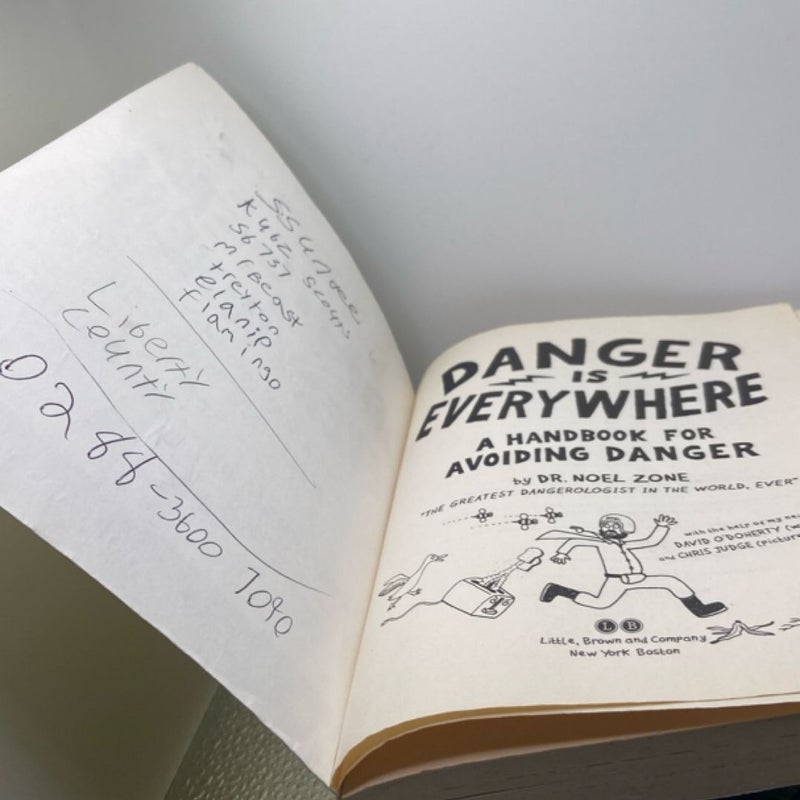 SSundee
Kubz Scouts
Sb737
MrBeast
treyton
elanip
flamingo
Liberty
County
0288-3600
DANGER
IS
EVERYWHERE
A HANDBOOK FOR
AVOIDING DANGER
by DR. NOEL ZONE
"THE GREATEST DANGEROLOGIST IN THE WORLD, EVER"
with the help of my
DAVID O'DOHERTY
and CHRIS JUDGE (pictures
L B
Little, Brown and Company
New York Boston